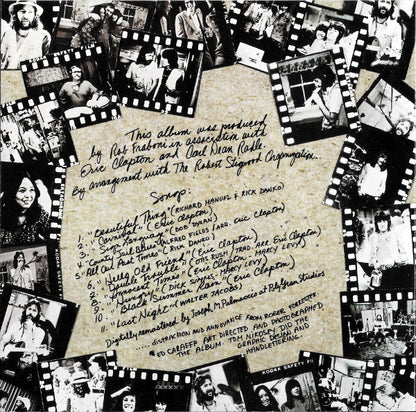 This album was produced
by Rob Fraboni in association with
Eric Clapton and Carl Dean Radle.
By arrangement with The Robert Stigwood Organization..
Songs:
1. "Beautiful Thing" (RICHARD MANUEL & RICK DANKO)
2. "Carnival" (Eric Clapton)
3. "Sign Language" (BOB DYLAN)
4. "County Jail Blues" (ALFRED FIELDS/ARR. ERIC Clapton)
5. "All Our Past Times" (RICK DANKO)
(Eric Clapton)
6. "Hello Old Friend" (Eric Clapton)
7. "Double Trouble" (OTIS RUSH)
8. "Innocent Times" (Eric Clapton/MARCY LEVY)
9. "Hungry" (DICK SIMS/MARCY LEVY)
10. "Black Summer Rain" (Eric Clapton)
11. "Last Night" (WALTER JACOBS)
Digitally remastered by Joseph M. Palmaccio at PolyGram Studios
DISTRACTION AND ANNOYANCE FROM ROGER FORRESTER
ED CARAEFF ART DIRECTED AND PHOTOGRAPHED
THE ALBUM. TOM NIKOSEY DID THE
GRAPHIC DESIGN AND
HANDLETTERING.
KODAK SAFETY F